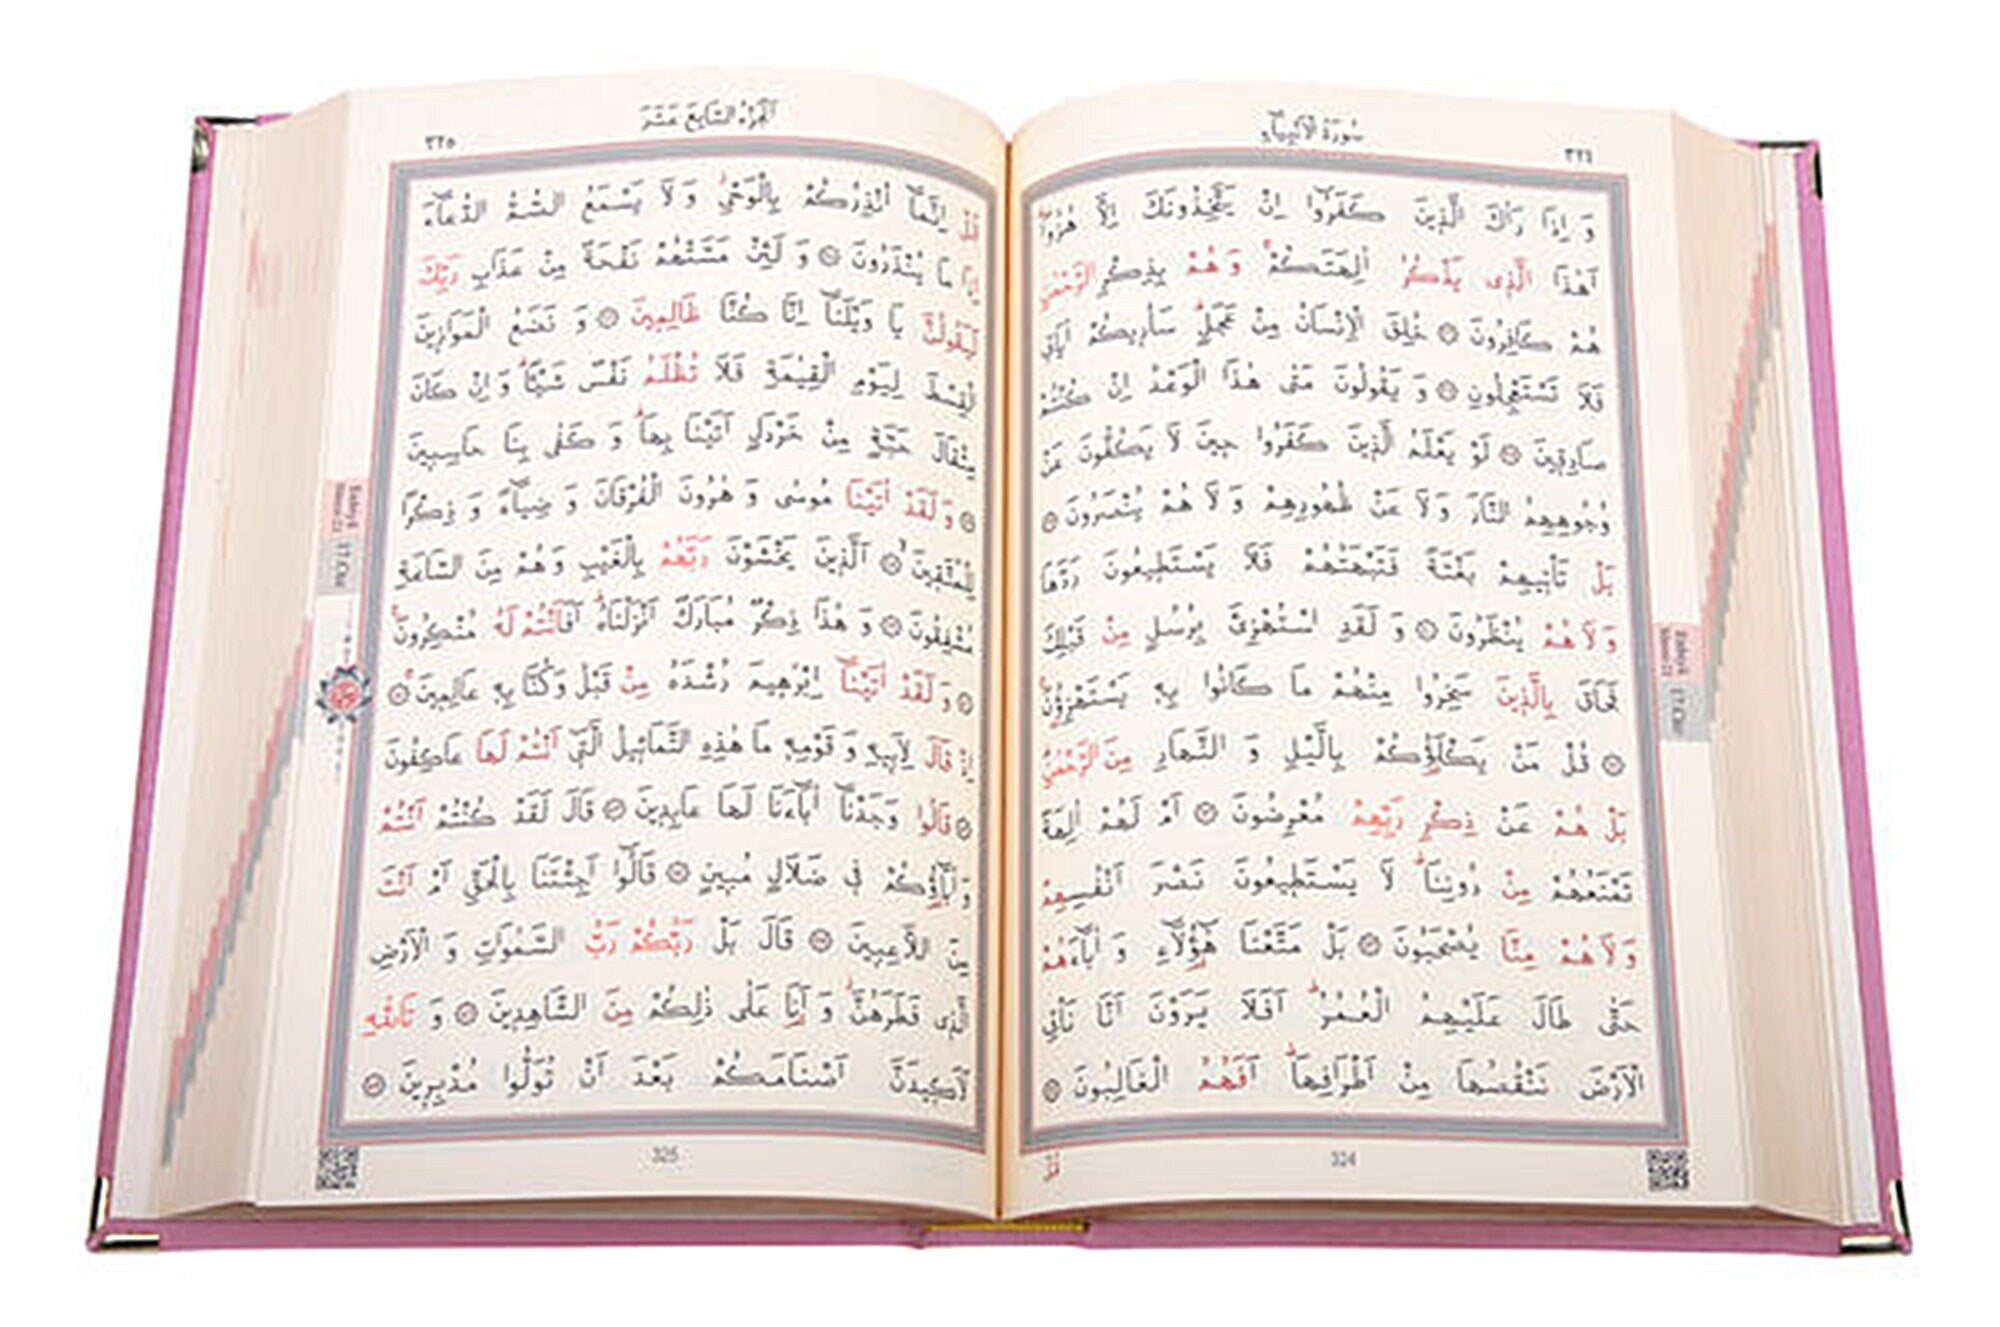 سُورَةُ الْاَنْبِيَاءِ
٣٢٤
وَ اِذَا رَاٰكَ الَّذٖينَ كَفَرُٓوا اِنْ يَتَّخِذُونَكَ اِلَّا هُزُوًاۜ
اَهٰذَا الَّذٖى يَذْكُرُ اٰلِهَتَكُمْۚ وَ هُمْ بِذِكْرِ الرَّحْمٰنِ
هُمْ كَافِرُونَ خُلِقَ الْاِنْسَانُ مِنْ عَجَلٍۜ سَاُرٖيكُمْ اٰيَاتٖى
فَلَا تَسْتَعْجِلُونِ وَ يَقُولُونَ مَتٰى هٰذَا الْوَعْدُ اِنْ كُنْتُمْ
صَادِقٖينَ لَوْ يَعْلَمُ الَّذٖينَ كَفَرُوا حٖينَ لَا يَكُفُّونَ عَنْ
وُجُوهِهِمُ النَّارَ وَ لَا عَنْ ظُهُورِهِمْ وَ لَا هُمْ يُنْصَرُونَ
بَلْ تَأْتٖيهِمْ بَغْتَةً فَتَبْهَتُهُمْ فَلَا يَسْتَطٖيعُونَ رَدَّهَا
وَ لَا هُمْ يُنْظَرُونَ وَ لَقَدِ اسْتُهْزِئَ بِرُسُلٍ مِنْ قَبْلِكَ
فَحَاقَ بِالَّذٖينَ سَخِرُوا مِنْهُمْ مَا كَانُوا بِهٖ يَسْتَهْزِؤُنَ۟
قُلْ مَنْ يَكْلَؤُكُمْ بِالَّيْلِ وَ النَّهَارِ مِنَ الرَّحْمٰنِۜ
بَلْ هُمْ عَنْ ذِكْرِ رَبِّهِمْ مُعْرِضُونَ اَمْ لَهُمْ اٰلِهَةٌ
تَمْنَعُهُمْ مِنْ دُونِنَاۜ لَا يَسْتَطٖيعُونَ نَصْرَ اَنْفُسِهِمْ
وَ لَا هُمْ مِنَّا يُصْحَبُونَ بَلْ مَتَّعْنَا هٰٓؤُلَٓاءِ وَ اٰبَٓاءَهُمْ
حَتّٰى طَالَ عَلَيْهِمُ الْعُمُرُۜ اَفَلَا يَرَوْنَ اَنَّا نَأْتِى
الْاَرْضَ نَنْقُصُهَا مِنْ اَطْرَافِهَاۜ اَفَهُمُ الْغَالِبُونَ
قُلْ
324
اَلْجُزْءُ السَّابِعَ عَشَرَ
٣٢٥
قُلْ اِنَّمَٓا اُنْذِرُكُمْ بِالْوَحْيِۘ وَ لَا يَسْمَعُ الصُّمُّ الدُّعَٓاءَ
اِذَا مَا يُنْذَرُونَ وَ لَئِنْ مَسَّتْهُمْ نَفْحَةٌ مِنْ عَذَابِ رَبِّكَ
لَيَقُولُنَّ يَا وَيْلَنَٓا اِنَّا كُنَّا ظَالِمٖينَ وَ نَضَعُ الْمَوَازٖينَ
الْقِسْطَ لِيَوْمِ الْقِيٰمَةِ فَلَا تُظْلَمُ نَفْسٌ شَيْئًاۜ وَ اِنْ كَانَ
مِثْقَالَ حَبَّةٍ مِنْ خَرْدَلٍ اَتَيْنَا بِهَاۜ وَ كَفٰى بِنَا حَاسِبٖينَ
وَ لَقَدْ اٰتَيْنَا مُوسٰى وَ هٰرُونَ الْفُرْقَانَ وَ ضِيَٓاءً وَ ذِكْرًا
لِلْمُتَّقٖينَۙ اَلَّذٖينَ يَخْشَوْنَ رَبَّهُمْ بِالْغَيْبِ وَ هُمْ مِنَ السَّاعَةِ
مُشْفِقُونَ وَ هٰذَا ذِكْرٌ مُبَارَكٌ اَنْزَلْنَاهُۜ اَفَاَنْتُمْ لَهُ مُنْكِرُونَ۟
وَ لَقَدْ اٰتَيْنَٓا اِبْرٰهٖيمَ رُشْدَهُ مِنْ قَبْلُ وَ كُنَّا بِهٖ عَالِمٖينَۚ
اِذْ قَالَ لِاَبٖيهِ وَ قَوْمِهٖ مَا هٰذِهِ التَّمَاثٖيلُ الَّتٖٓى اَنْتُمْ لَهَا عَاكِفُونَ
قَالُوا وَجَدْنَٓا اٰبَٓاءَنَا لَهَا عَابِدٖينَ قَالَ لَقَدْ كُنْتُمْ اَنْتُمْ
وَ اٰبَٓاؤُكُمْ فٖى ضَلَالٍ مُبٖينٍ قَالُٓوا اَجِئْتَنَا بِالْحَقِّ اَمْ اَنْتَ
مِنَ اللَّاعِبٖينَ قَالَ بَلْ رَبُّكُمْ رَبُّ السَّمٰوَاتِ وَ الْاَرْضِ
الَّذٖى فَطَرَهُنَّۘ وَ اَنَا عَلٰى ذٰلِكُمْ مِنَ الشَّاهِدٖينَ وَ تَاللّٰهِ
لَاَكٖيدَنَّ اَصْنَامَكُمْ بَعْدَ اَنْ تُوَلُّوا مُدْبِرٖينَ
325